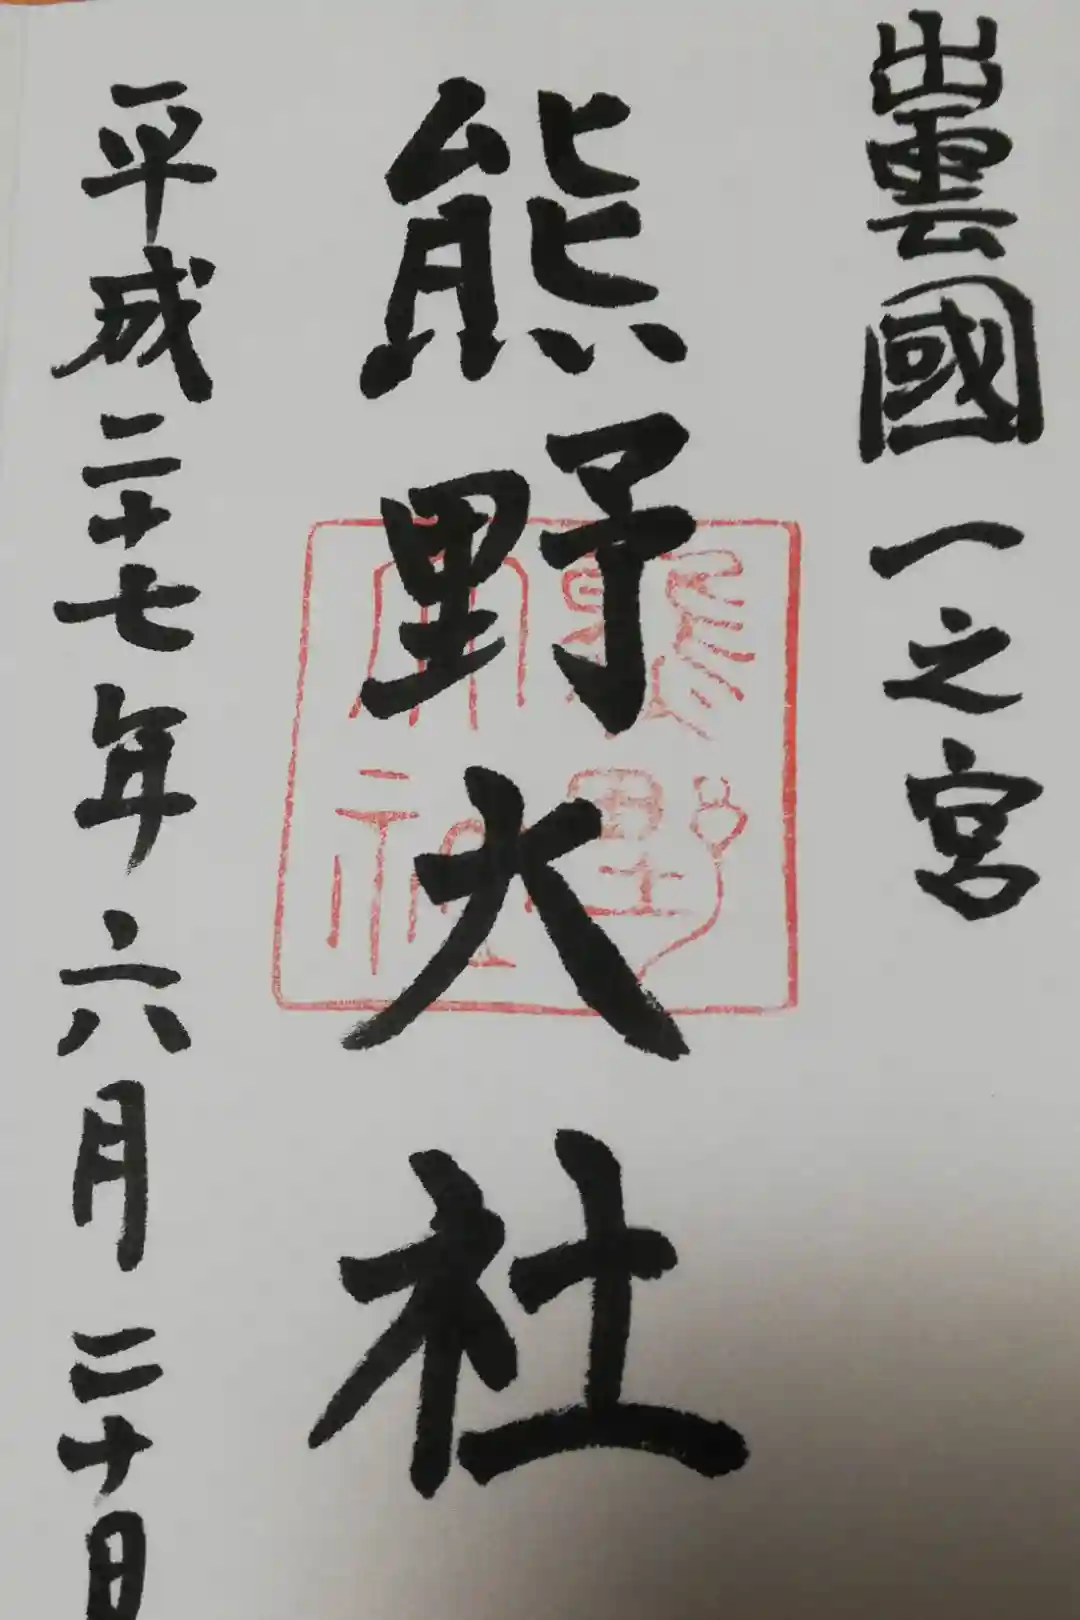 出雲國一之宮
熊野大社
平成二十七年六月二十日
熊野大社